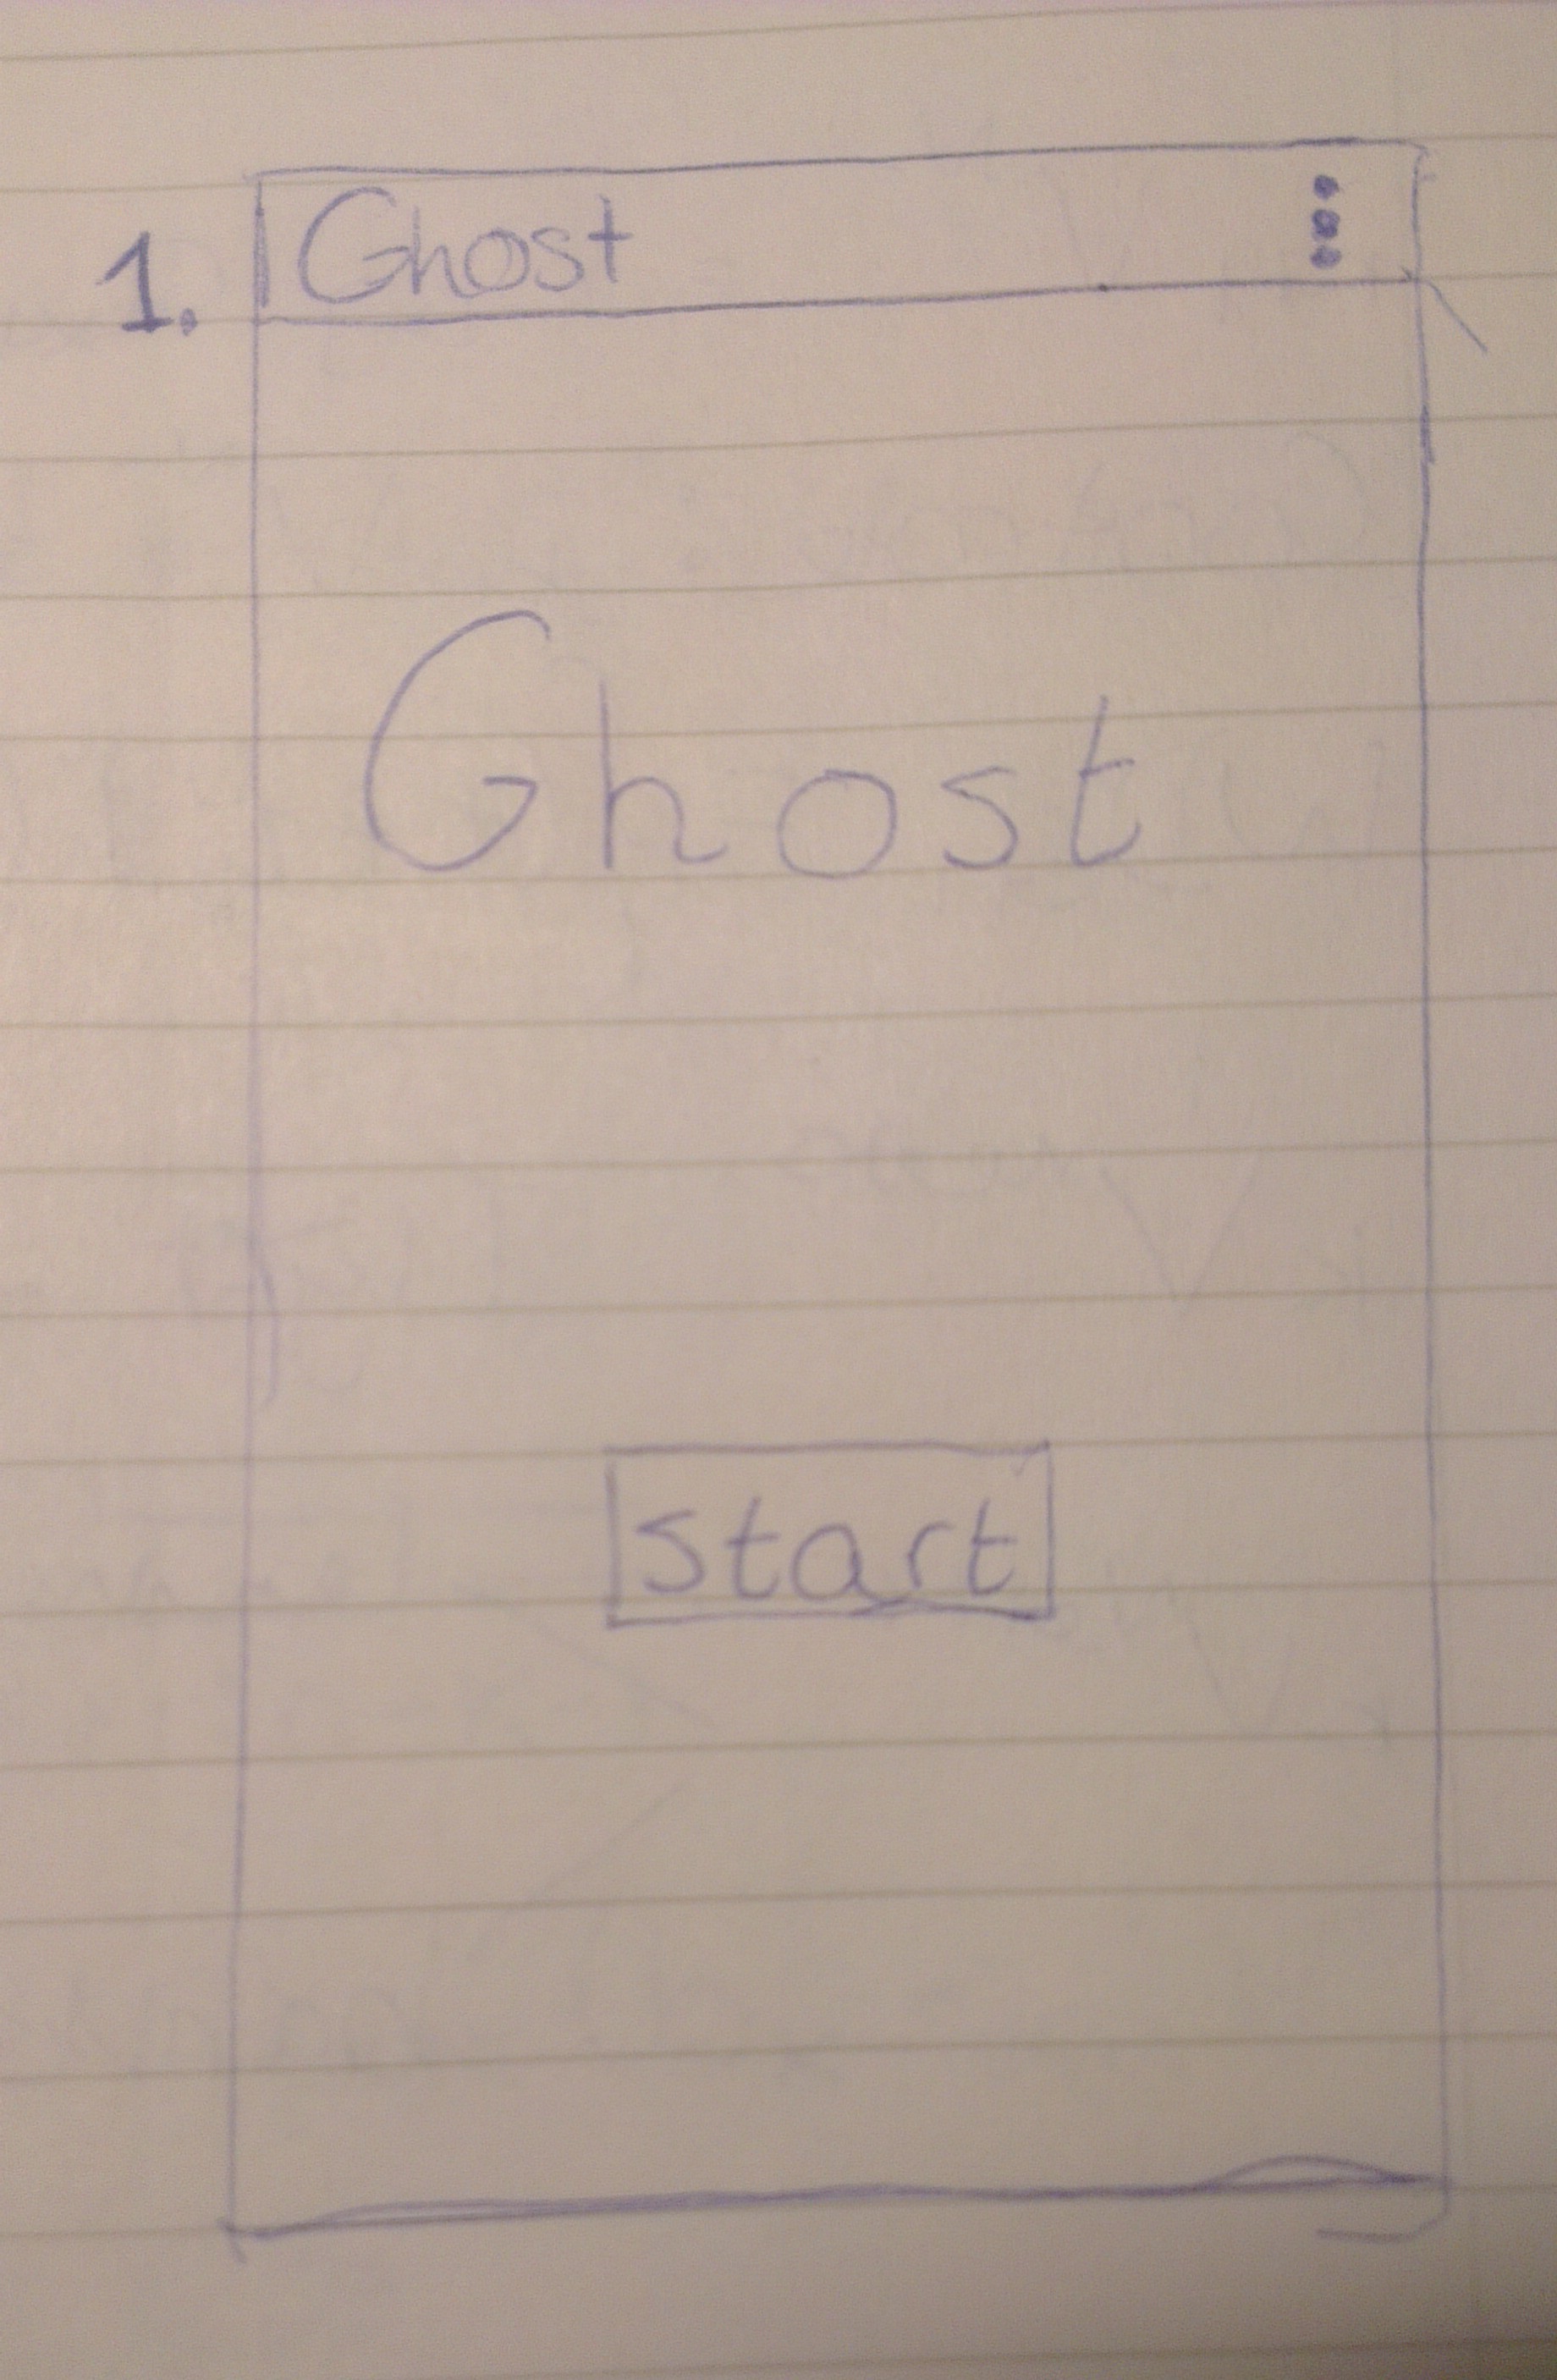 1.
Ghost
Ghost
start